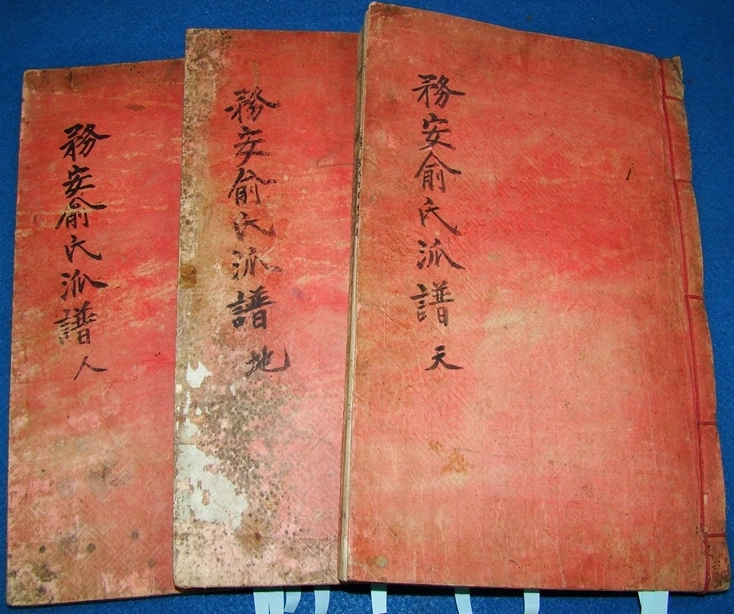 務安兪氏派譜 天
務安兪氏派譜 地
務安兪氏派譜 人